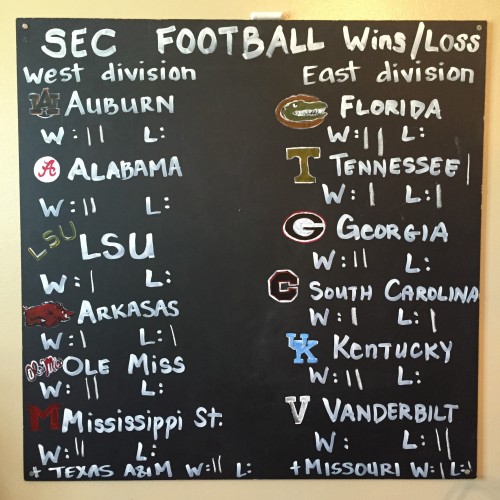 SEC FOOTBALL Wins/Loss
West division
AU AUBURN
W: || L:
A ALABAMA
W: || L:
LSU LSU
W: | L:
ARKASAS
W: | L: |
Ole Miss OLE MISS
W: || L:
M Mississippi St.
W: || L:
+ TEXAS A&M W: || L:
East division
FLORIDA
W: || L:
T TENNESSEE |
W: | L: |
G GEORGIA
W: || L:
C SOUTH CAROLINA
W: | L: |
UK KENTUCKY
W: || L:
V VANDERBILT
W: L: ||
+ MISSOURI W: | L: |